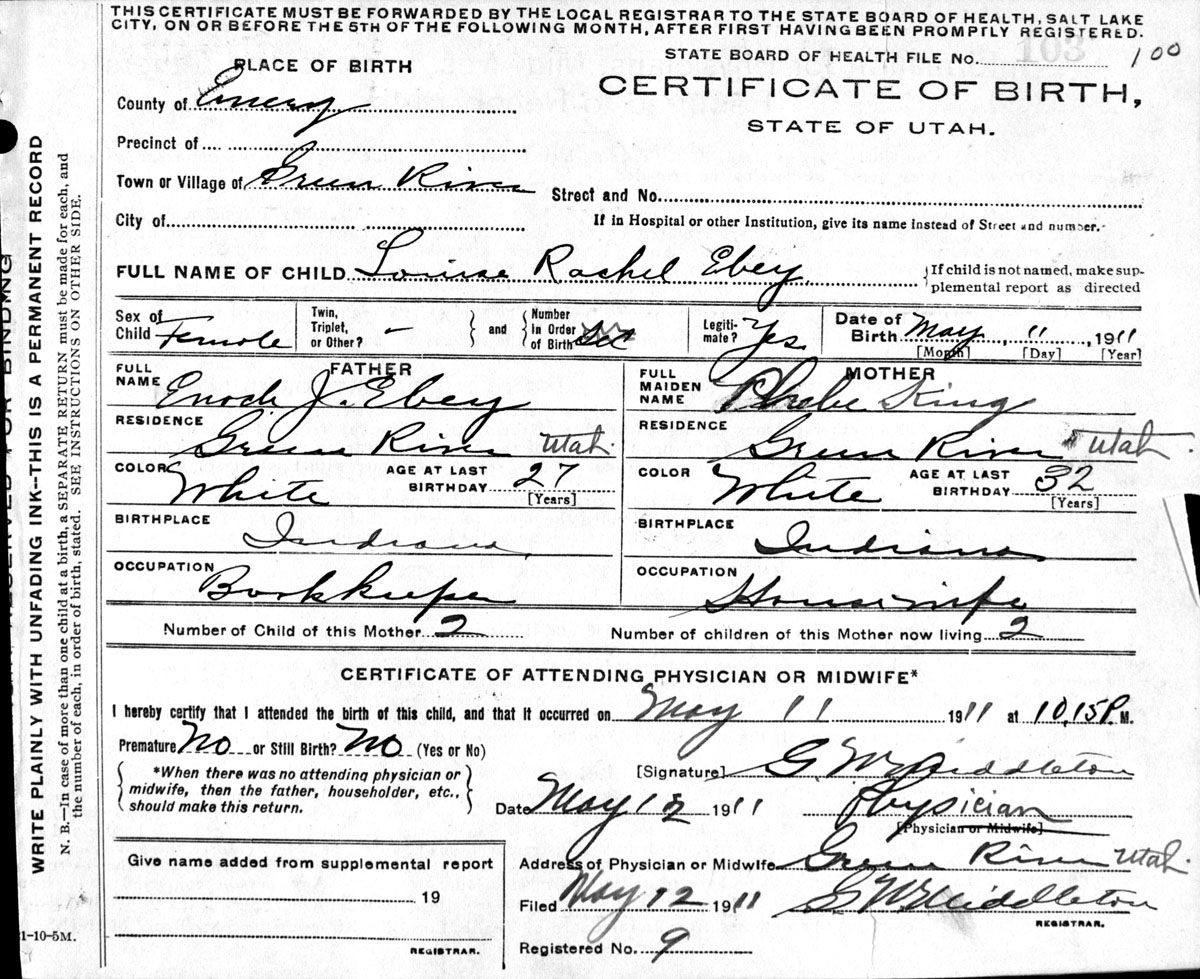 THIS CERTIFICATE MUST BE FORWARDED BY THE LOCAL REGISTRAR TO THE STATE BOARD OF HEALTH, SALT LAKE
CITY, ON OR BEFORE THE 5TH OF THE FOLLOWING MONTH, AFTER FIRST HAVING BEEN PROMPTLY REGISTERED.
STATE BOARD OF HEALTH FILE No. 103 100
PLACE OF BIRTH
CERTIFICATE OF BIRTH,
STATE OF UTAH.
County of Emery
Precinct of
Town or Village of Green River
Street and No.
City of
If in Hospital or other Institution, give its name instead of Street and number.
FULL NAME OF CHILD Louise Rachel Ebey
If child is not named, make sup-
plemental report as directed
Sex of Child Female
Twin, Triplet, or Other? –
and
Number in Order of Birth
Legiti-mate? Yes
Date of Birth May 11, 1911
[Month] [Day] [Year]
FATHER
FULL NAME Enoch J. Ebey
RESIDENCE Green River Utah
COLOR White AGE AT LAST BIRTHDAY 27 [Years]
BIRTHPLACE Indiana
OCCUPATION Bookkeeper
MOTHER
FULL MAIDEN NAME Phebe King
RESIDENCE Green River Utah.
COLOR White AGE AT LAST BIRTHDAY 32 [Years]
BIRTHPLACE Indiana
OCCUPATION Housewife
Number of Child of this Mother 2
Number of children of this Mother now living 2
CERTIFICATE OF ATTENDING PHYSICIAN OR MIDWIFE*
I hereby certify that I attended the birth of this child, and that it occurred on May 11 1911 at 10,15 P. M.
Premature No or Still Birth? No (Yes or No)
*When there was no attending physician or
midwife, then the father, householder, etc.,
should make this return.
[Signature] G W Middleton
Date May 12 1911 Physician
[Physician or Midwife]
Give name added from supplemental report
19
REGISTRAR.
Address of Physician or Midwife Green River Utah.
Filed May 12 1911 G W Middleton
REGISTRAR.
Registered No. 9
WRITE PLAINLY WITH UNFADING INK--THIS IS A PERMANENT RECORD
N. B.—In case of more than one child at a birth, a SEPARATE RETURN must be made for each, and
the number of each, in order of birth, stated. SEE INSTRUCTIONS ON OTHER SIDE.
1-10-5M.